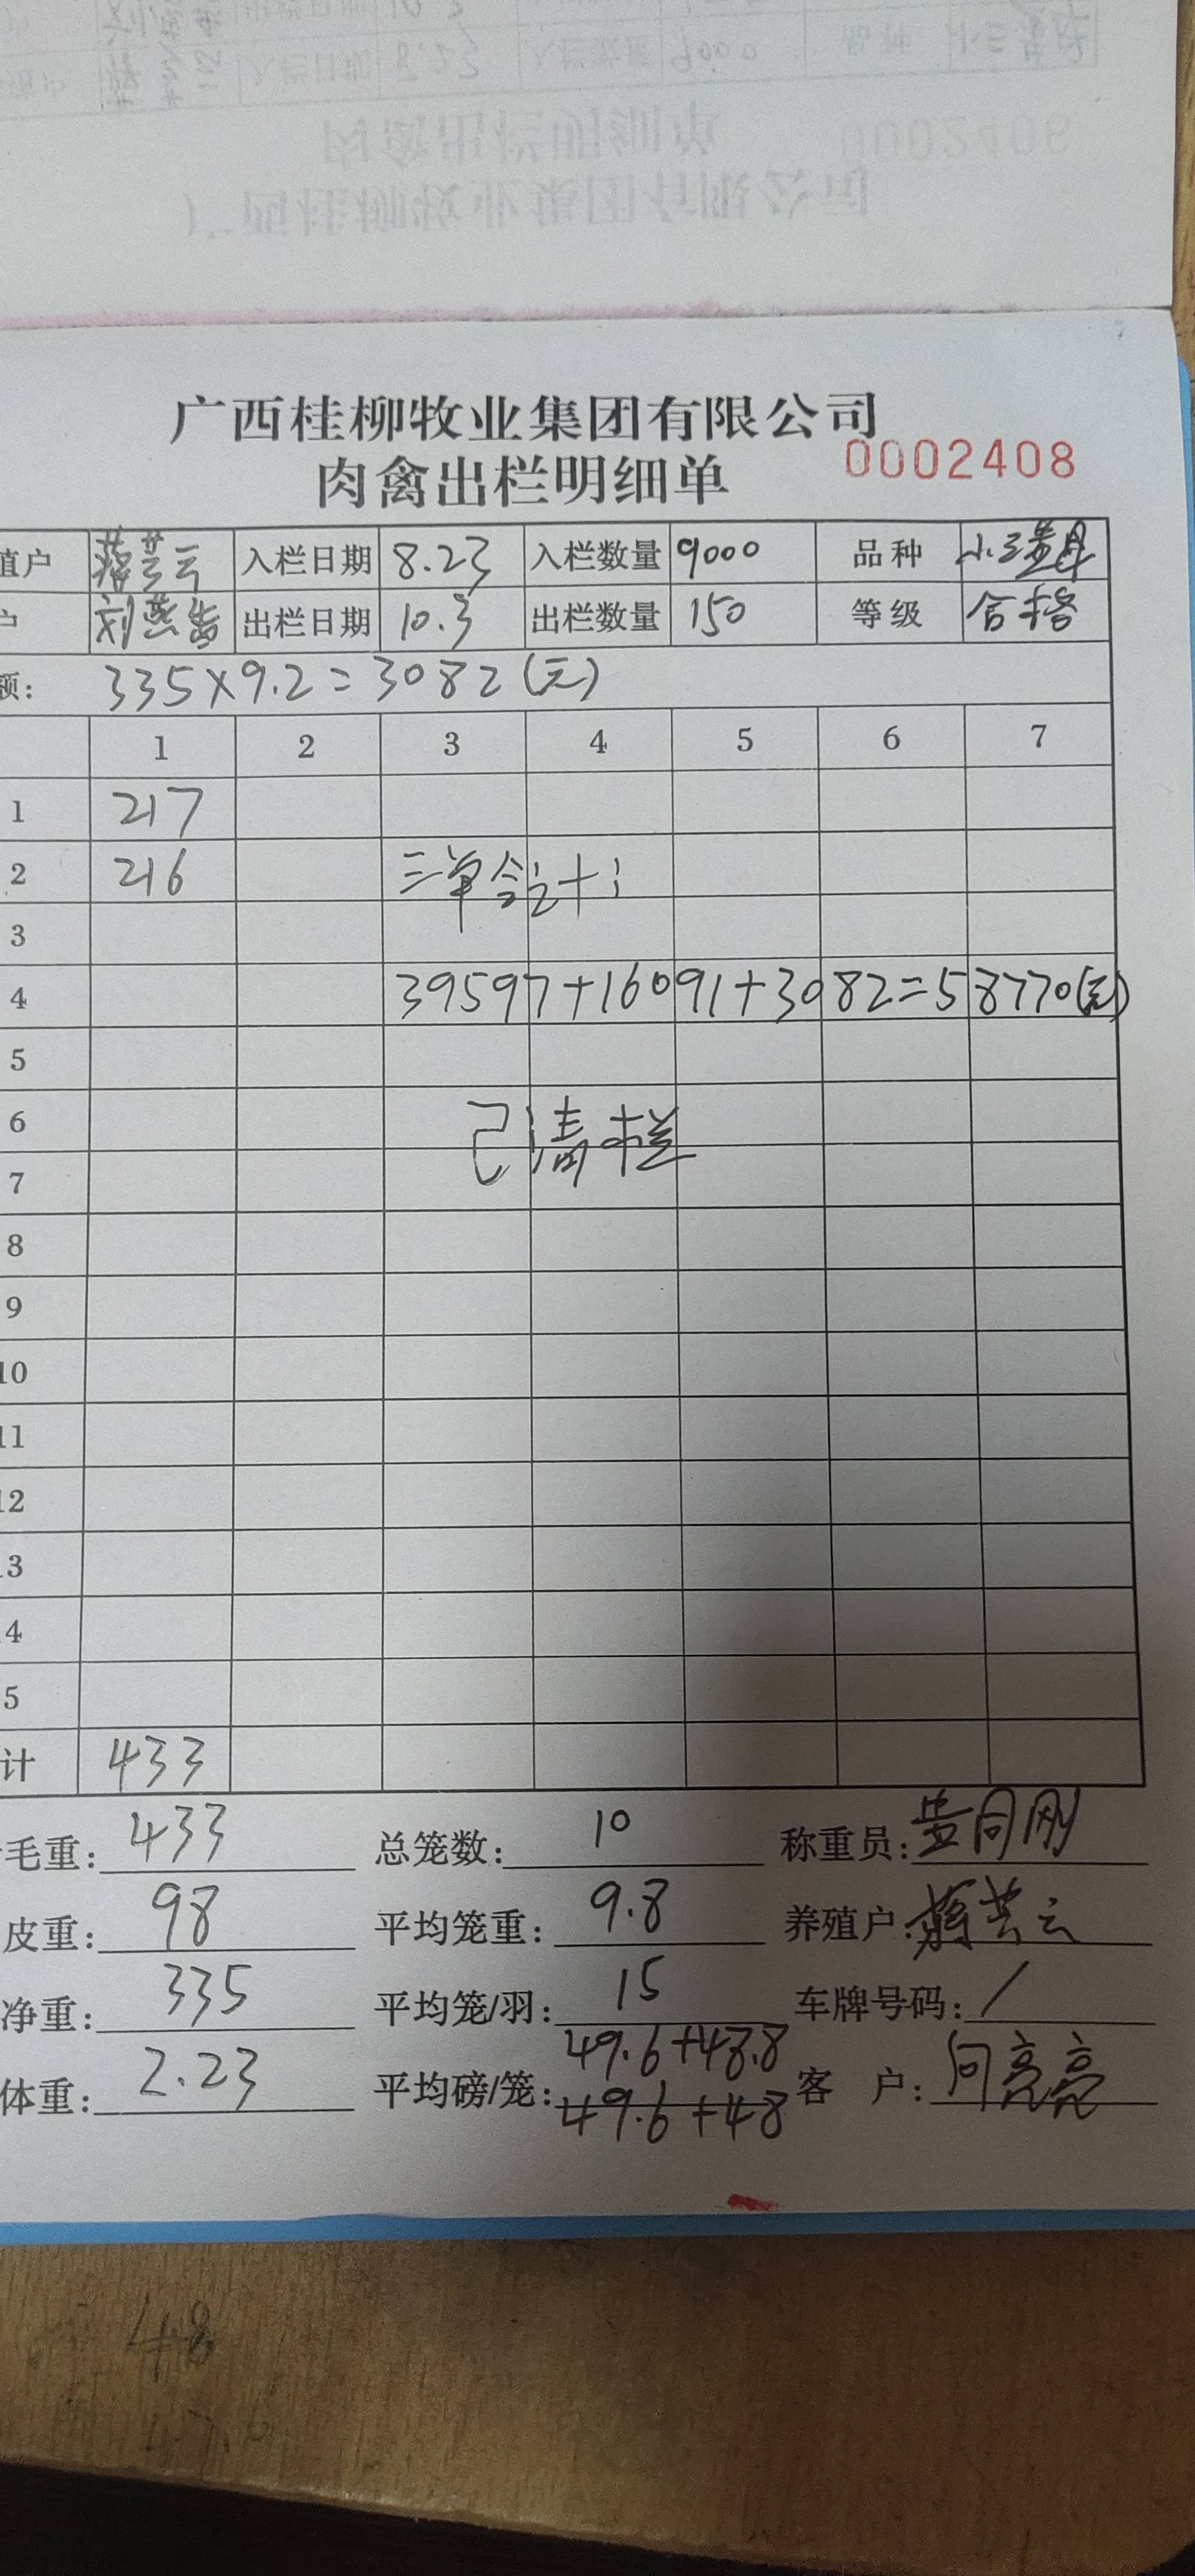 广西桂柳牧业集团有限公司
肉禽出栏明细单 0002408
殖户 蒋芸云 入栏日期 8.23 入栏数量 9000 品种
户 出栏日期 10.3 出栏数量 150 等级 合格
额: 335×9.2=3082(元)
1 2 3 4 5 6 7
1 217
2 216 三单合计:
3
4 39597+16091+3082=58770(元)
5
6 已清栏
7
8
9
10
11
12
13
14
15
计 433
毛重: 433 总笼数: 10 称重员:
皮重: 98 平均笼重: 9.8 养殖户: 蒋芸云
净重: 335 平均笼/羽: 15 车牌号码: /
体重: 2.23 平均磅/笼: 49.6+48.8 客户: 向亮亮
49.6+48
48